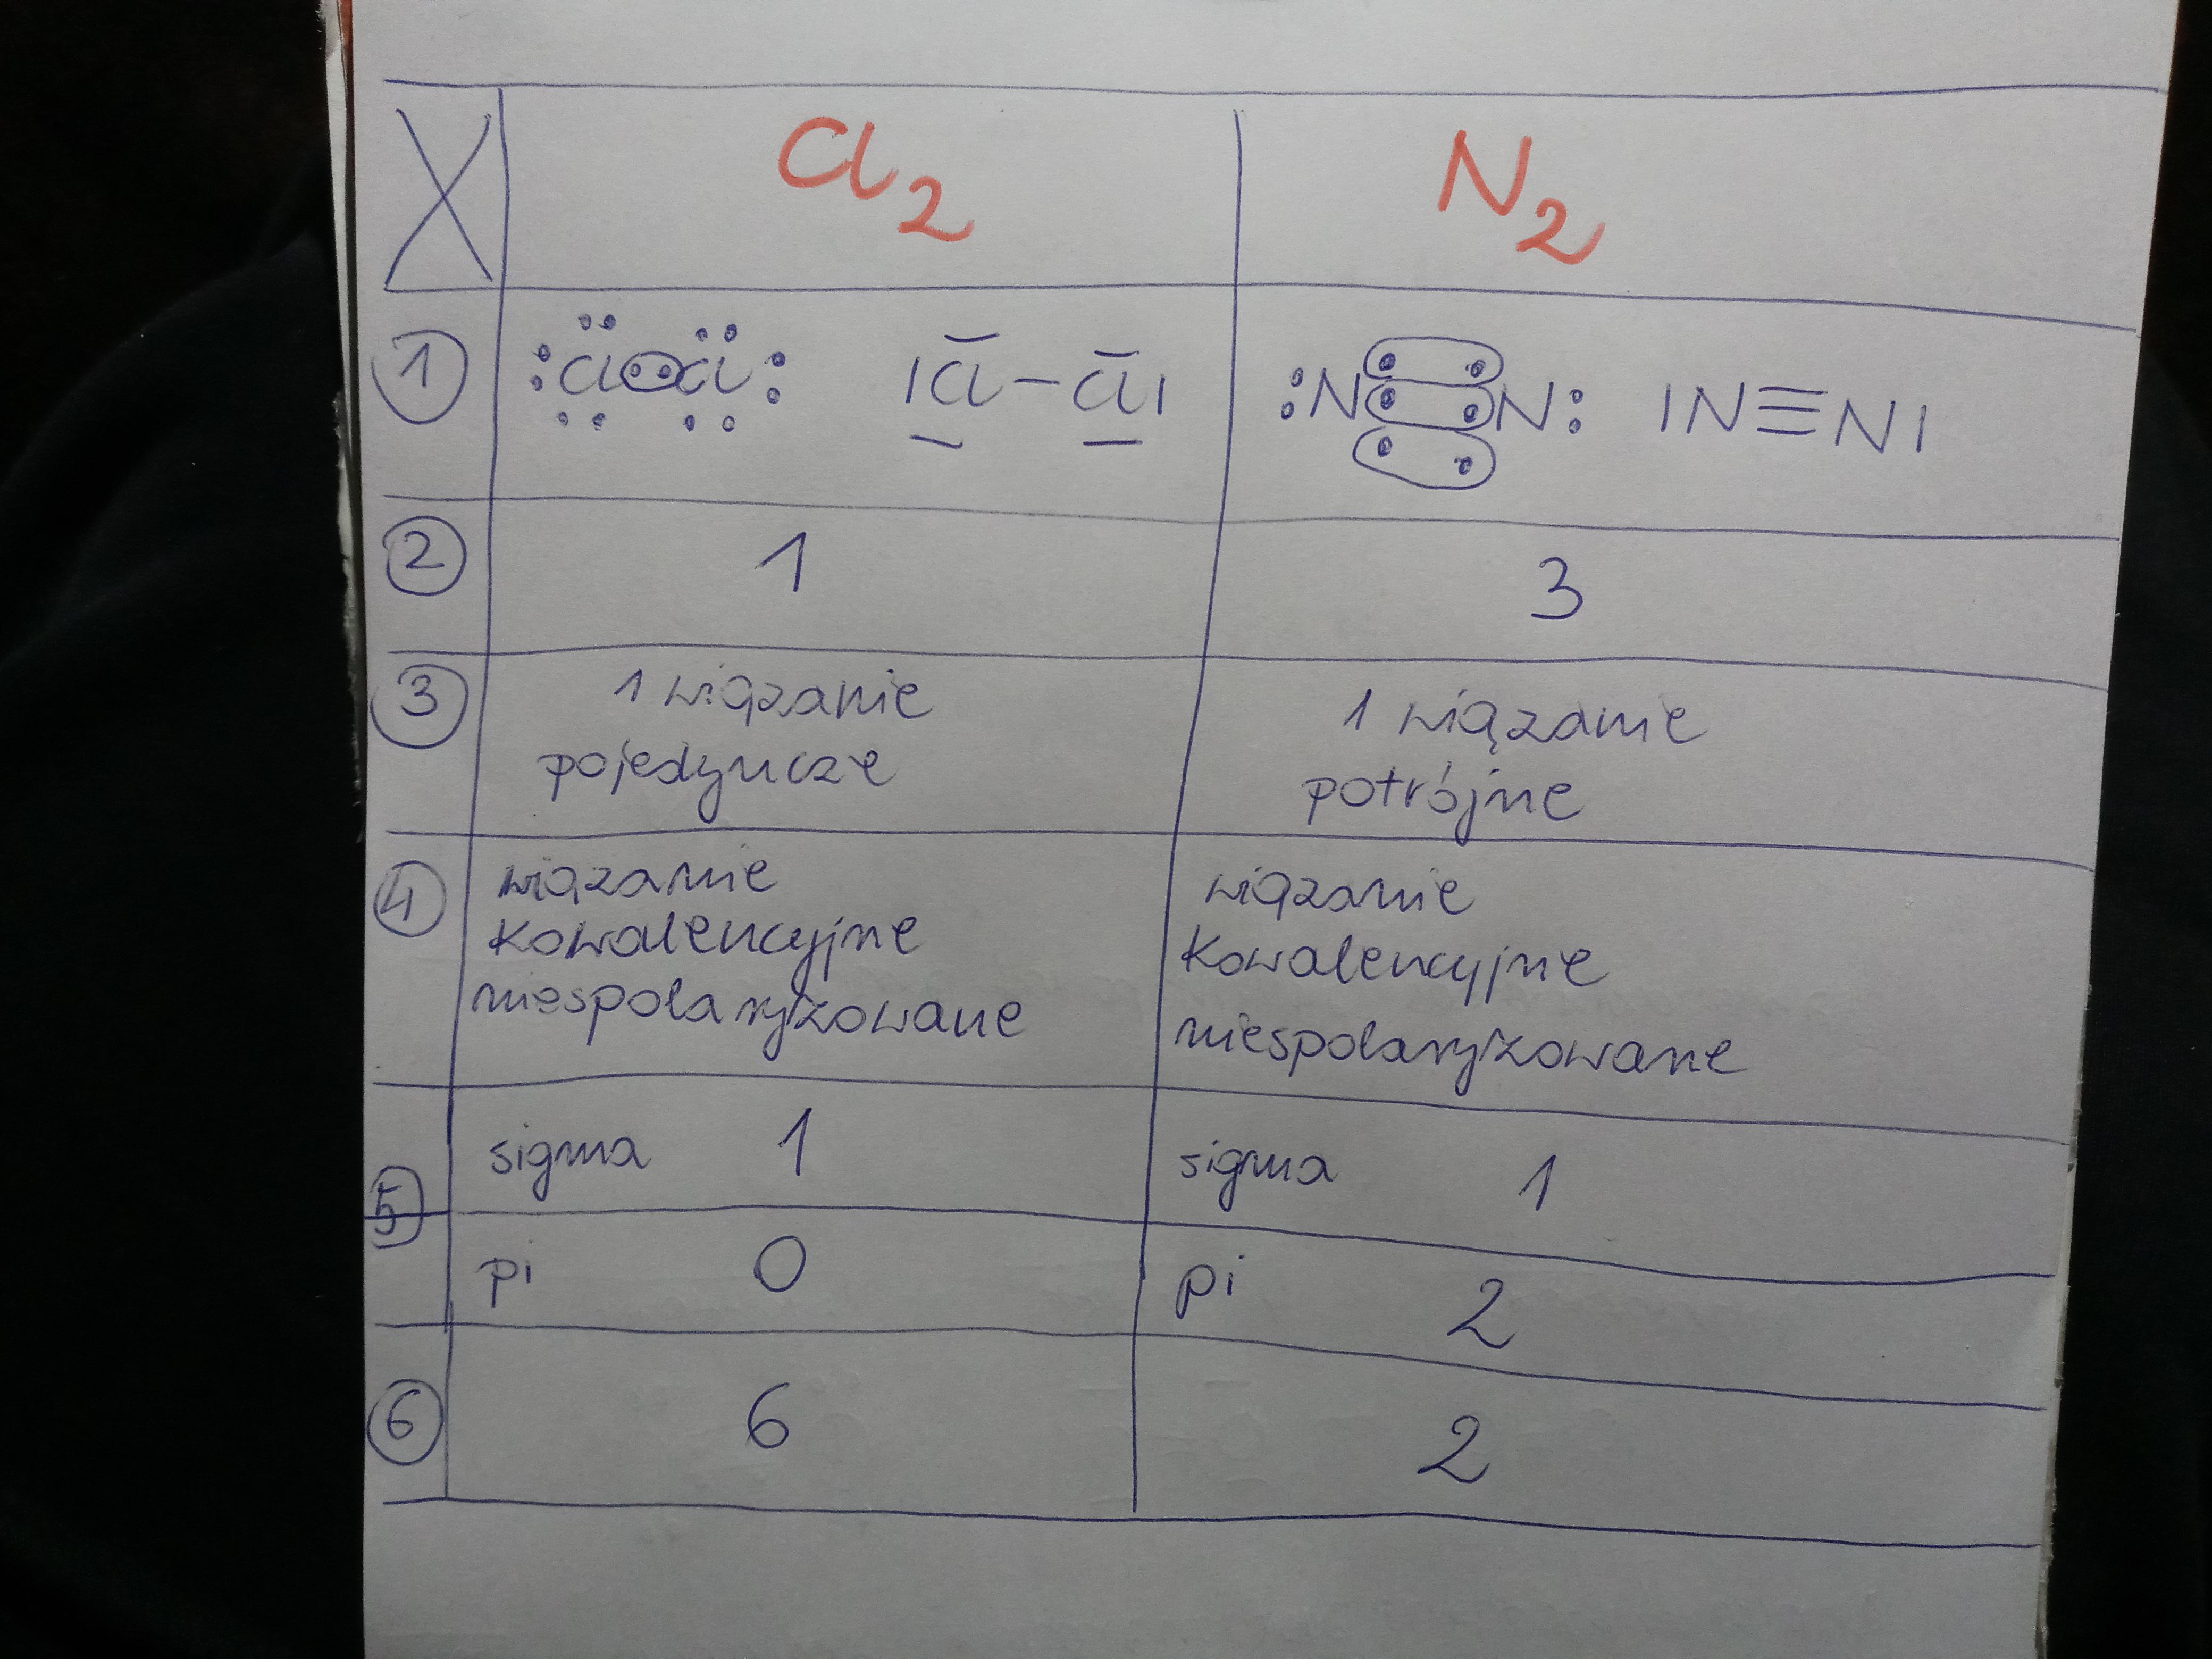 Cl₂ N₂
① :Cl:Cl: |Cl–Cl| :N:::N: |N≡N|
② 1 3
③ 1 wiązanie 1 wiązanie
pojedyncze potrójne
④ wiązanie wiązanie
kowalencyjne kowalencyjne
niespolaryzowane niespolaryzowane
⑤ sigma 1 sigma 1
pi 0 pi 2
⑥ 6 2